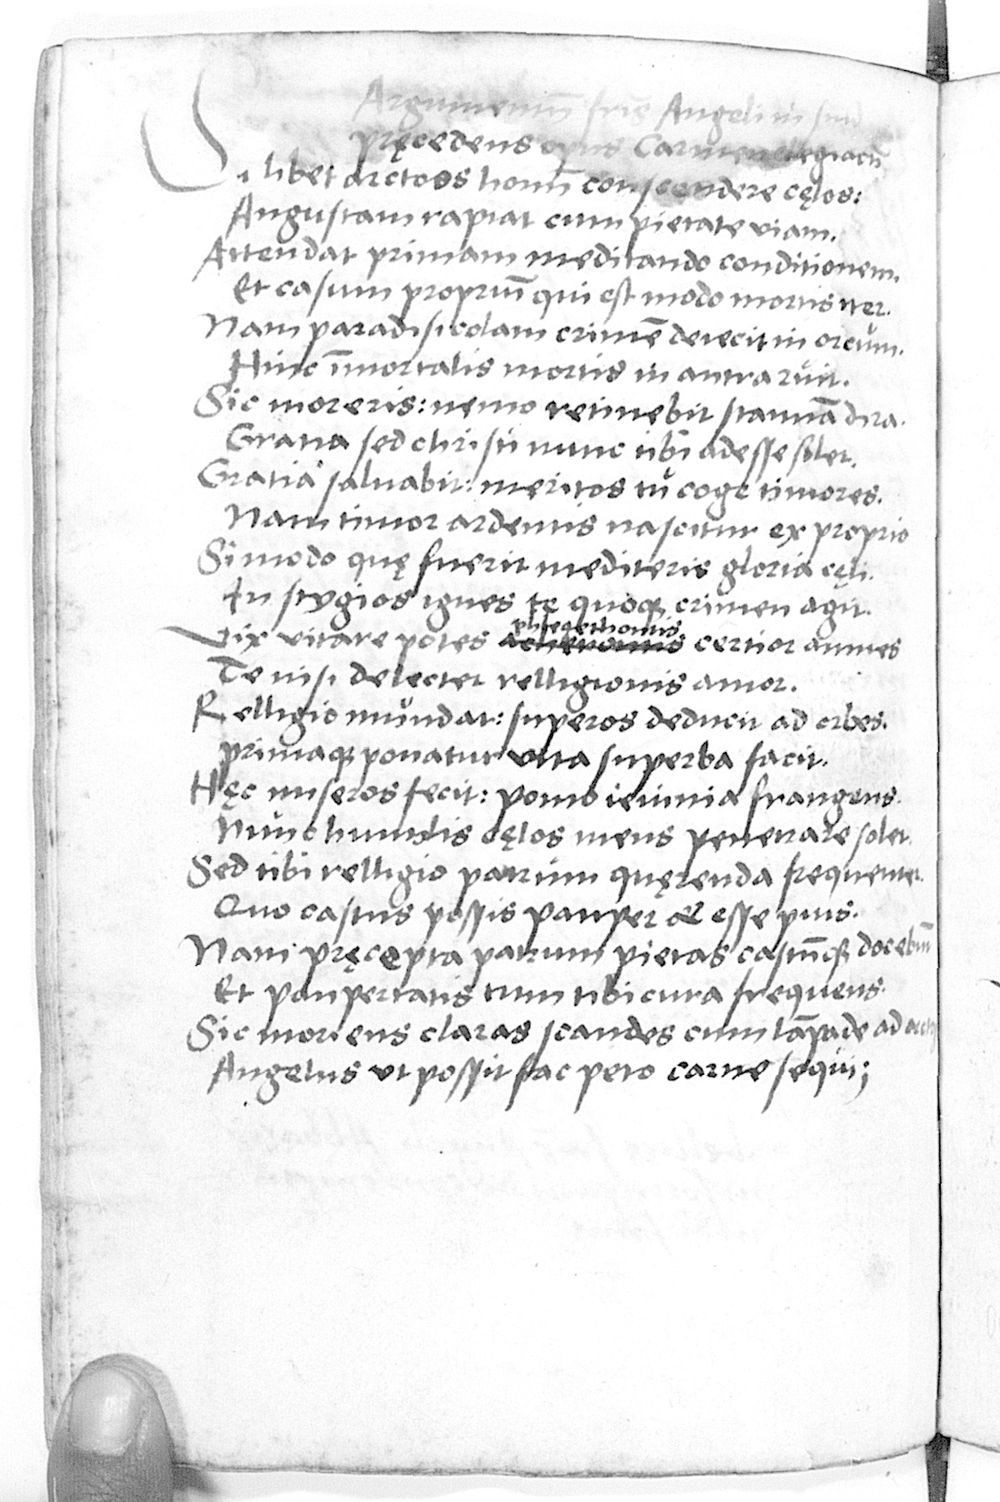 Argumentum̄ fr̄is Angeli in suū
pręcedens opus Carmen elegiacū
Si libet arctoos homī conscendere cęlos:
Angustam rapiat cum pietate viam.
Attendat primam meditando conditionem.
Et casum propriū qui est modo mortis iter.
Nam paradisicolam crimē deiecit in orcum.
Hinc īmortalis mortis in antra ruit.
Sic moreris: nemo retinebit stamīa dira.
Gratia sed christi nunc tibi adesse solet.
Gratia saluabit: meritos tu coge timores.
Nam timor ardentis nascitur ex proprio
Si modo quę fuerit mediteris gloria cęli.
In stygios ignes te quoq; crimen agit.
phlegethontis
Vix vitare potes acherontis certior amnes
Te nisi delectet relligionis amor.
Relligio mundat: superos deducit ad orbes.
primaq; ponatur vita superba facit.
Hęc miseros fecit: pomo ieiunia frangens.
Nunc humilis cęlos mens penetrare solet.
Sed tibi relligio patrum quęrenda frequenter.
Quo castus possis pauper & esse pius.
Nam pręcepta patrum pietas castūq; docebūt
Et paupertatis tum tibi cura frequens.
Sic moriens claras scandes cum lāpade ad
Angelus ut possit fac peto carne sequi;